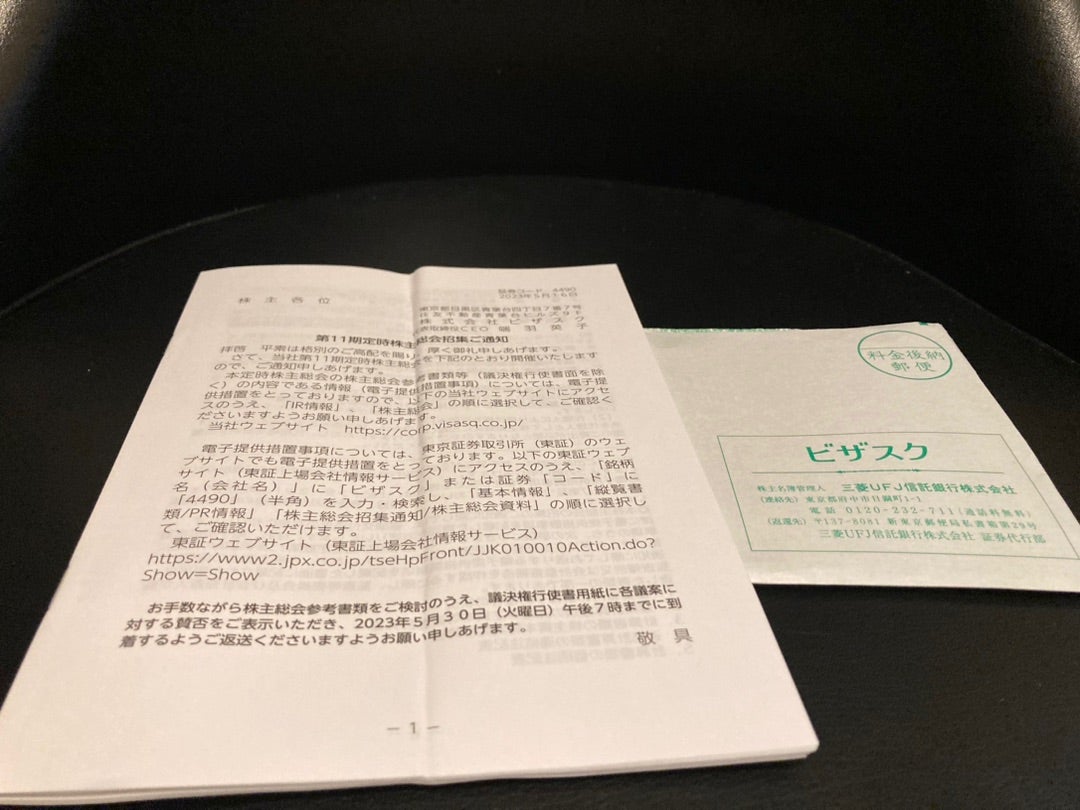 証券コード 4490
2023年5月16日
株主各位
東京都目黒区青葉台四丁目7番7号
住友不動産青葉台ヒルズ9F
株式会社ビザスク
代表取締役CEO 端羽英子
第11期定時株主総会招集ご通知
拝啓 平素は格別のご高配を賜り、厚く御礼申しあげます。
さて、当社第11期定時株主総会を下記のとおり開催いたします
ので、ご通知申しあげます。
本定時株主総会の株主総会参考書類等（議決権行使書面を除
く）の内容である情報（電子提供措置事項）については、電子提
供措置をとっておりますので、以下の当社ウェブサイトにアクセ
スのうえ、「IR情報」、「株主総会」の順に選択して、ご確認く
ださいますようお願い申しあげます。
当社ウェブサイト https://corp.visasq.co.jp/
電子提供措置事項については、東京証券取引所（東証）のウェ
ブサイトでも電子提供措置をとっております。以下の東証ウェブ
サイト（東証上場会社情報サービス）にアクセスのうえ、「銘柄
名（会社名）」に「ビザスク」または証券「コード」に
「4490」（半角）を入力・検索し、「基本情報」、「縦覧書
類/PR情報」「株主総会招集通知/株主総会資料」の順に選択し
て、ご確認いただけます。
東証ウェブサイト（東証上場会社情報サービス）
https://www2.jpx.co.jp/tseHpFront/JJK010010Action.do?
Show=Show
お手数ながら株主総会参考書類をご検討のうえ、議決権行使書用紙に各議案に
対する賛否をご表示いただき、2023年5月30日（火曜日）午後7時までに到
着するようご返送くださいますようお願い申しあげます。
敬具
－1－
料金後納
郵便
ビザスク
株主名簿管理人 三菱UFJ信託銀行株式会社
（連絡先）東京都府中市日鋼町1-1
電話 0120-232-711（通話料無料）
（返還先）〒137-8081 新東京郵便局私書箱第29号
三菱UFJ信託銀行株式会社 証券代行部